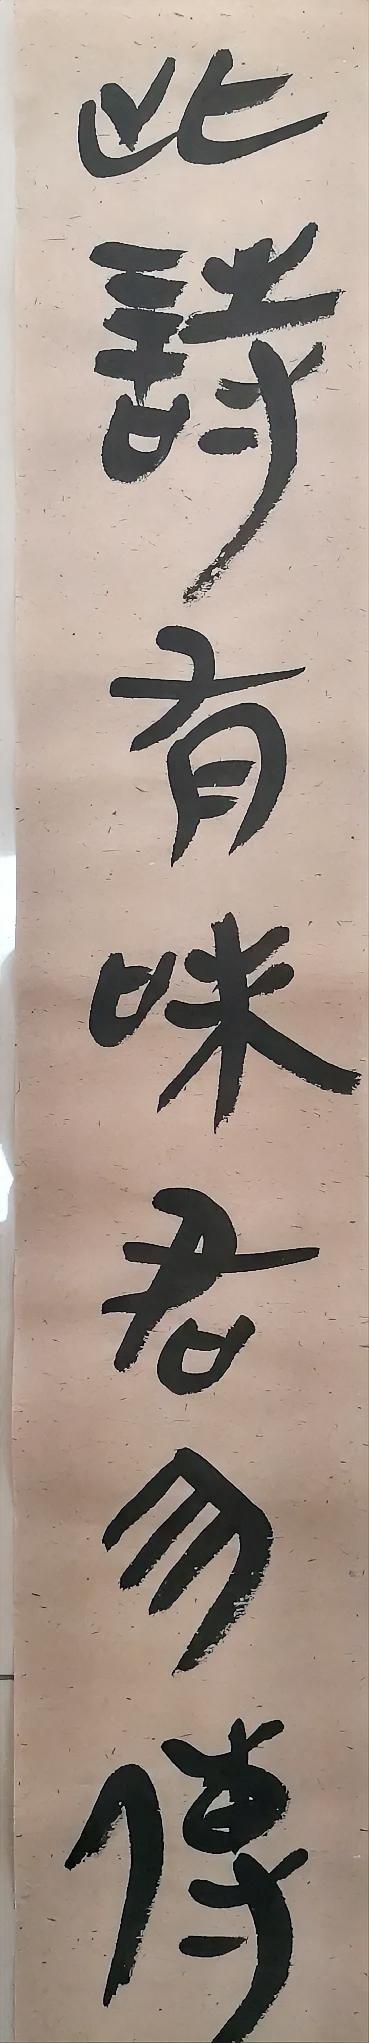 此詩有味君勿傳